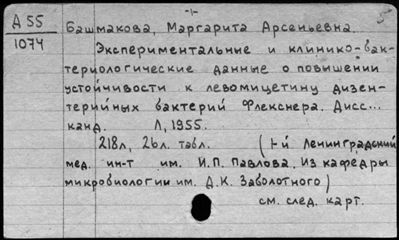 -1-
5
А 55 Башмакова, Маргарита Арсеньевна.
1074 Экспериментальные и клинико-бак-
териологические данные о повышении
устойчивости к левомицетину дизен-
терийных бактерий Флекснера. Дисс...
канд. Л, 1955.
218л, 26л. табл. (1-й Ленинградский
мед. ин-т им. И.П. Павлова. Из кафедры
микробиологии им. Д.К. Заболотного)
см. след. карт.